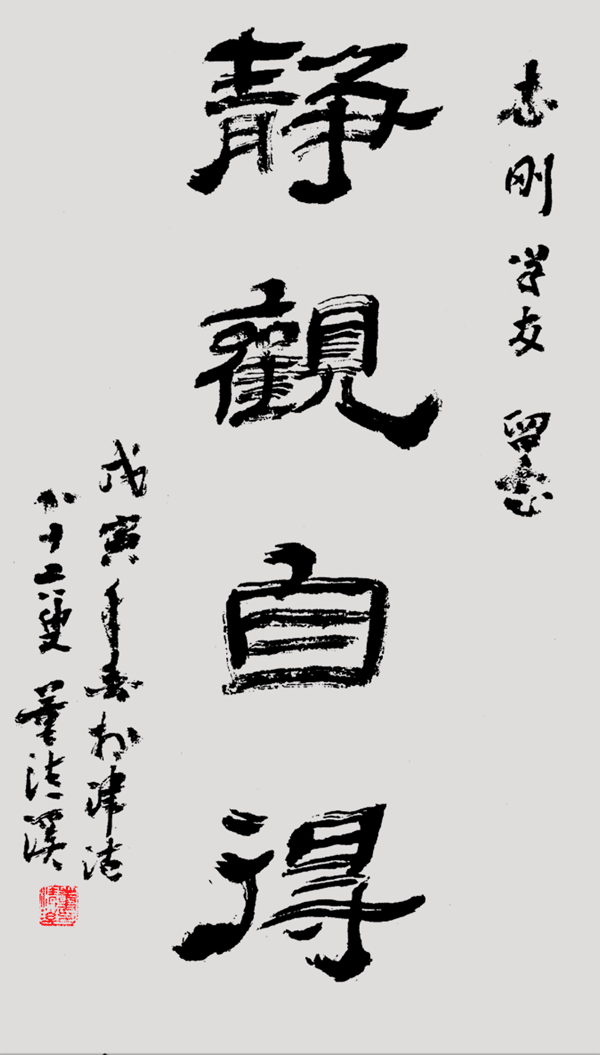 志刚学友留念
静觀自得
戊寅年春於津沽
八十二叟 董清溪